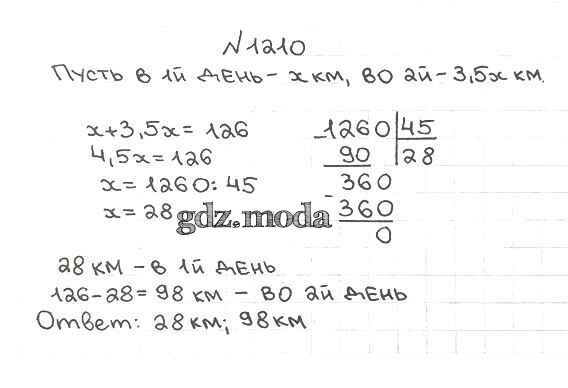 №1210
Пусть в 1й день - x км, во 2й - 3,5x км.
x+3,5x = 126
4,5x = 126
x = 1260 : 45
x = 28
1260 45
90 28
360
360
0
gdz.moda
28 км - в 1й день
126-28 = 98 км - во 2й день
Ответ: 28 км; 98 км